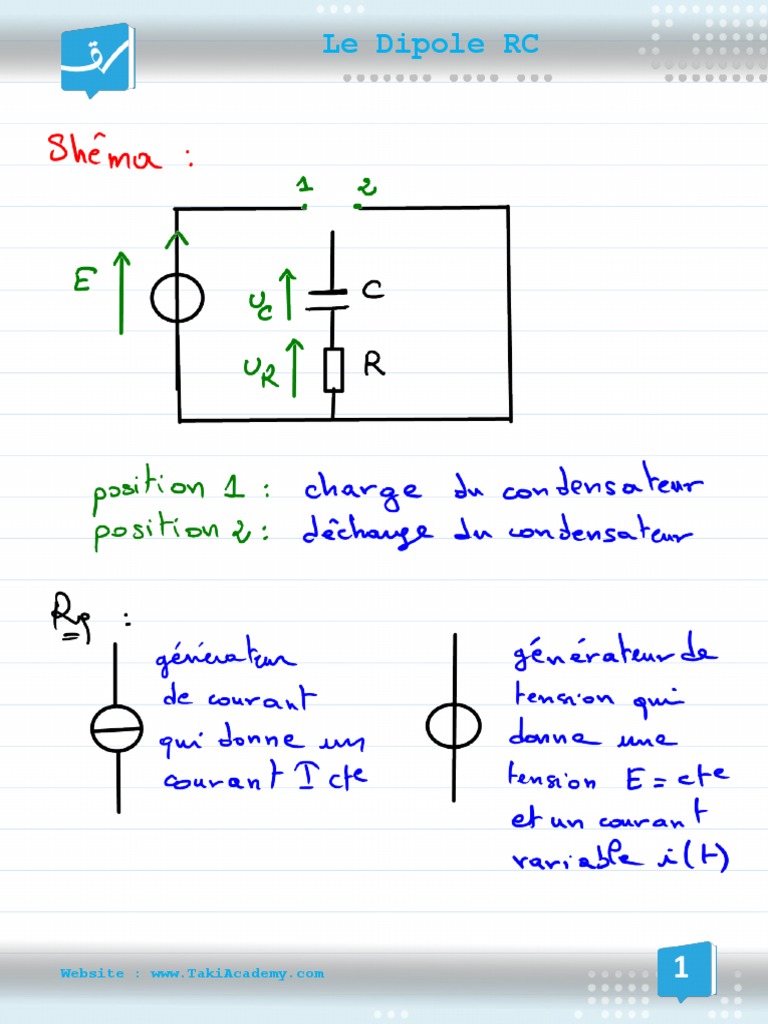 Le Dipole RC
Shêma :
1 2
E
uc
C
uR
R
position 1 : charge du condensateur
position 2 : dêcharge du condensateur
Rq :
générateur
de courant
qui donne un
courant I cte
générateur de
tension qui
donne une
tension E = cte
et un courant
variable i(t)
Website : www.TakiAcademy.com
1